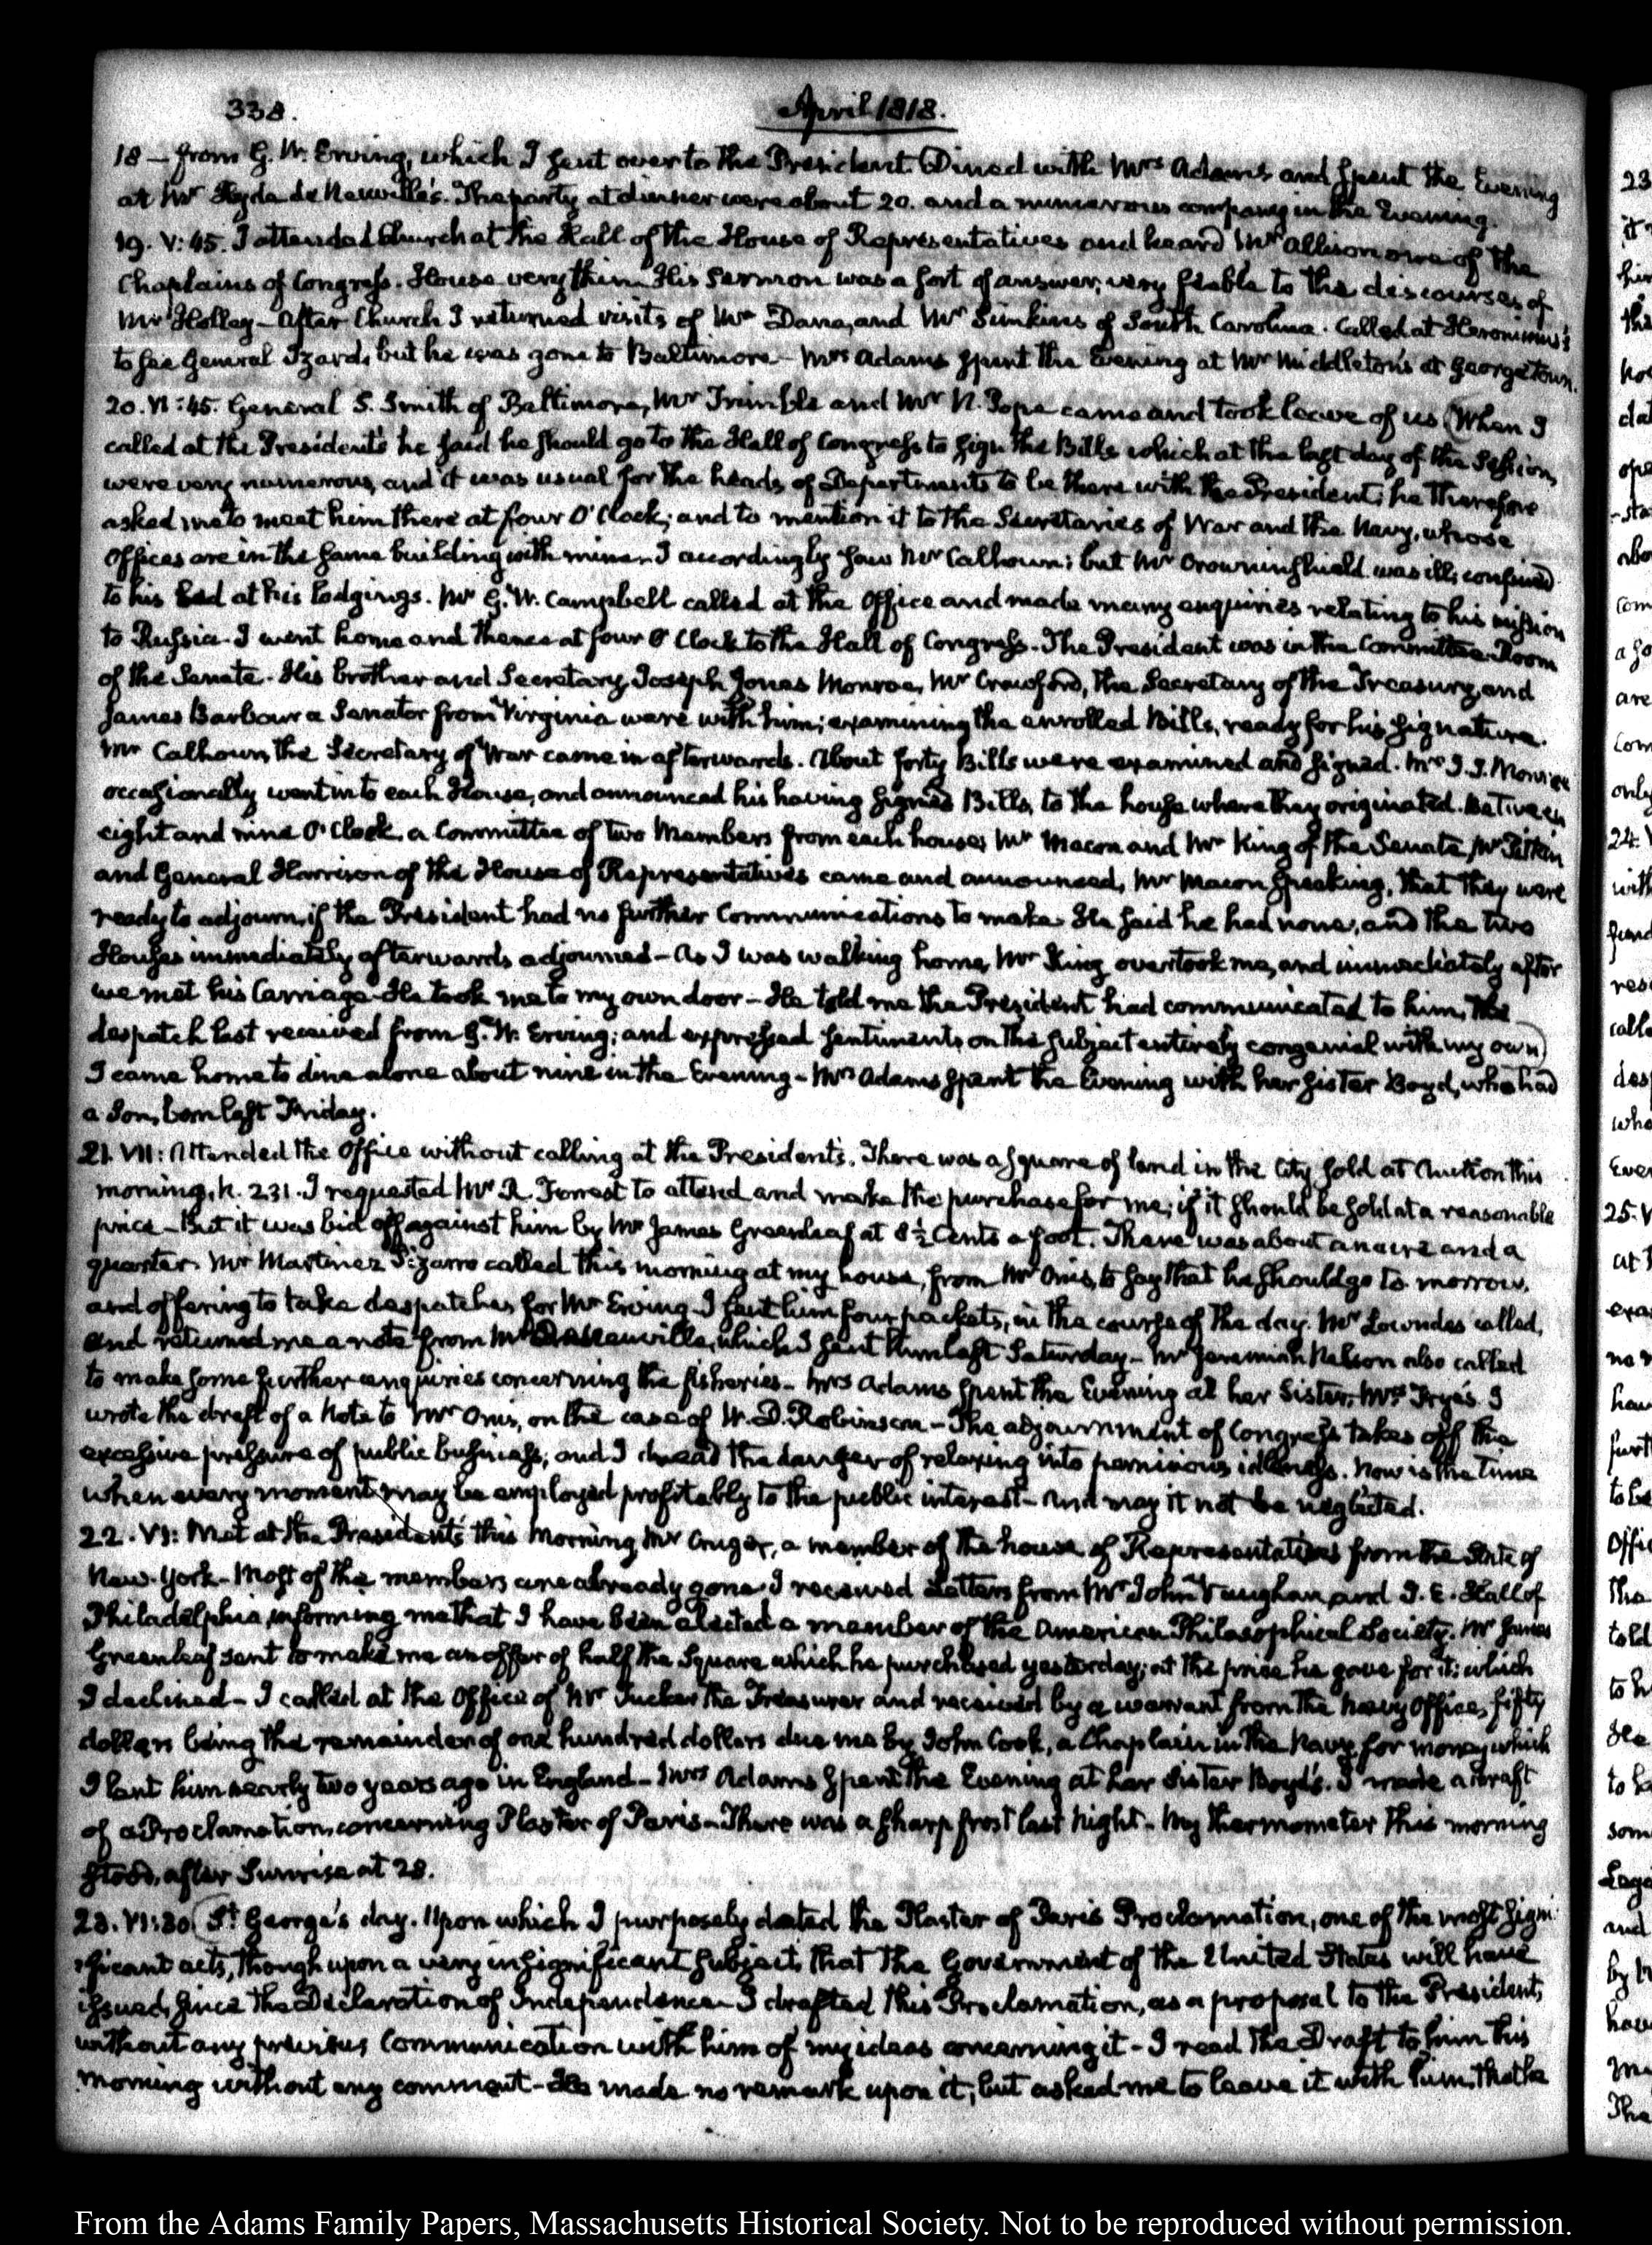 338.
April 1818.
18 — from G. W. Erving, which I sent over to the President. Dined with Mrs Adams and spent the Evening
at Mr Hyde de Neuville's. The party at dinner were about 20. and a numerous company in the Evening.
19. V: 45. I attended Church at the Hall of the House of Representatives and heard Mr Allison one of the
Chaplains of Congress. House very thin. His Sermon was a sort of answer, very feeble to the discourses of
Mr Holley — After Church I returned visits of Mr Dana, and Mr Simkins of South Carolina. Called at Heronimus's
to see General Izard, but he was gone to Baltimore — Mrs Adams spent the Evening at Mr Middleton's at Georgetown.
20. VI: 45. General S. Smith of Baltimore, Mr Trimble and Mr N. Pope came and took leave of us. (When I
called at the President's he said he should go to the Hall of Congress to sign the Bills which at the last day of the Session,
were very numerous, and it was usual for the heads of Departments to be there with the President; he therefore
asked me to meet him there at four O'Clock; and to mention it to the Secretaries of War and the Navy, whose
Offices are in the same building with mine. I accordingly saw Mr Calhoun; but Mr Crowninshield was ill; confined
to his bed at his lodgings. Mr G. W. Campbell called at the Office and made many enquiries relating to his mission
to Russia. I went home and thence at four O'Clock to the Hall of Congress. The President was in the Committee Room
of the Senate. His brother and Secretary, Joseph Jones Monroe, Mr Crawford, the Secretary of the Treasury, and
James Barbour a Senator from Virginia were with him; examining the enrolled Bills, ready for his signature.
Mr Calhoun, the Secretary of War came in afterwards. About forty Bills were examined and signed. Mr J. J. Monroe
occasionally went into each House, and announced his having signed Bills, to the house where they originated. Between
eight and nine O'Clock, a Committee of two Members from each house, Mr Macon and Mr King of the Senate, Mr Pitkin
and General Harrison of the House of Representatives came and announced, Mr Macon speaking, that they were
ready to adjourn, if the President had no further Communications to make. He said he had none, and the two
Houses immediately afterwards adjourned — As I was walking home, Mr King overtook me, and immediately after
we met his Carriage. He took me to my own door — He told me the President had communicated to him, the
despatch last received from G. W. Erving; and expressed sentiments on the subject entirely congenial with my own)
I came home to dine alone about nine in the Evening — Mrs Adams spent the Evening with her Sister Boyd, who had
a Son, born last Friday.
21. VII: Attended the Office without calling at the President's. There was a square of land in the City sold at Auction this
morning, N. 231. I requested Mr R. Forrest to attend and make the purchase for me; if it should be sold at a reasonable
price — But it was bid off against him by Mr James Greenleaf at 8½ Cents a foot. There was about an acre and a
quarter. Mr Martinez Pizarro called this morning at my house, from Mr Onis, to say that he should go to-morrow,
and offering to take despatches for Mr Erving — I sent him four packets, in the course of the day. Mr Lowndes called,
and returned me a note from Mr De Neuville, which I sent him last Saturday — Mr Jeremiah Nelson also called
to make some further enquiries concerning the fisheries — Mrs Adams spent the Evening at her Sister, Mrs Frye's. I
wrote the draft of a Note to Mr Onis, on the case of W. D. Robinson — The adjournment of Congress takes off the
excessive pressure of public business; and I dread the danger of relaxing into pernicious idleness. Now is the time
when every moment may be employed profitably to the public interest — And may it not be neglected.
22. VI: Met at the President's this Morning Mr Cruger, a member of the house of Representatives from the State of
New-York — Most of the members are already gone. I received Letters from Mr John Vaughan, and J. E. Hall of
Philadelphia, informing me that I have been elected a member of the American Philosophical Society. Mr James
Greenleaf sent to make me an offer of half the Square which he purchased yesterday; at the price he gave for it; which
I declined — I called at the Office of Mr Tucker the Treasurer and received by a warrant from the Navy Office, fifty
dollars being the remainder of one hundred dollars due me by John Cook, a Chaplain in the Navy, for money which
I lent him nearly two years ago in England — Mrs Adams spent the Evening at her Sister Boyd's. I made a draft
of a Proclamation, concerning Plaster of Paris — There was a sharp frost last night — My thermometer this morning
stood, after Sunrise at 28.
23. VI: 30. (St George's day. Upon which I purposely dated the Plaster of Paris Proclamation, one of the most signi-
-ficant acts, though upon a very insignificant subject, that the Government of the United States will have
issued, since the Declaration of Independence — I drafted this Proclamation, as a proposal to the President,
without any previous Communication with him of my ideas concerning it — I read the Draft to him this
morning without any comment — He made no remark upon it; but asked me to leave it with him, that he
From the Adams Family Papers, Massachusetts Historical Society. Not to be reproduced without permission.